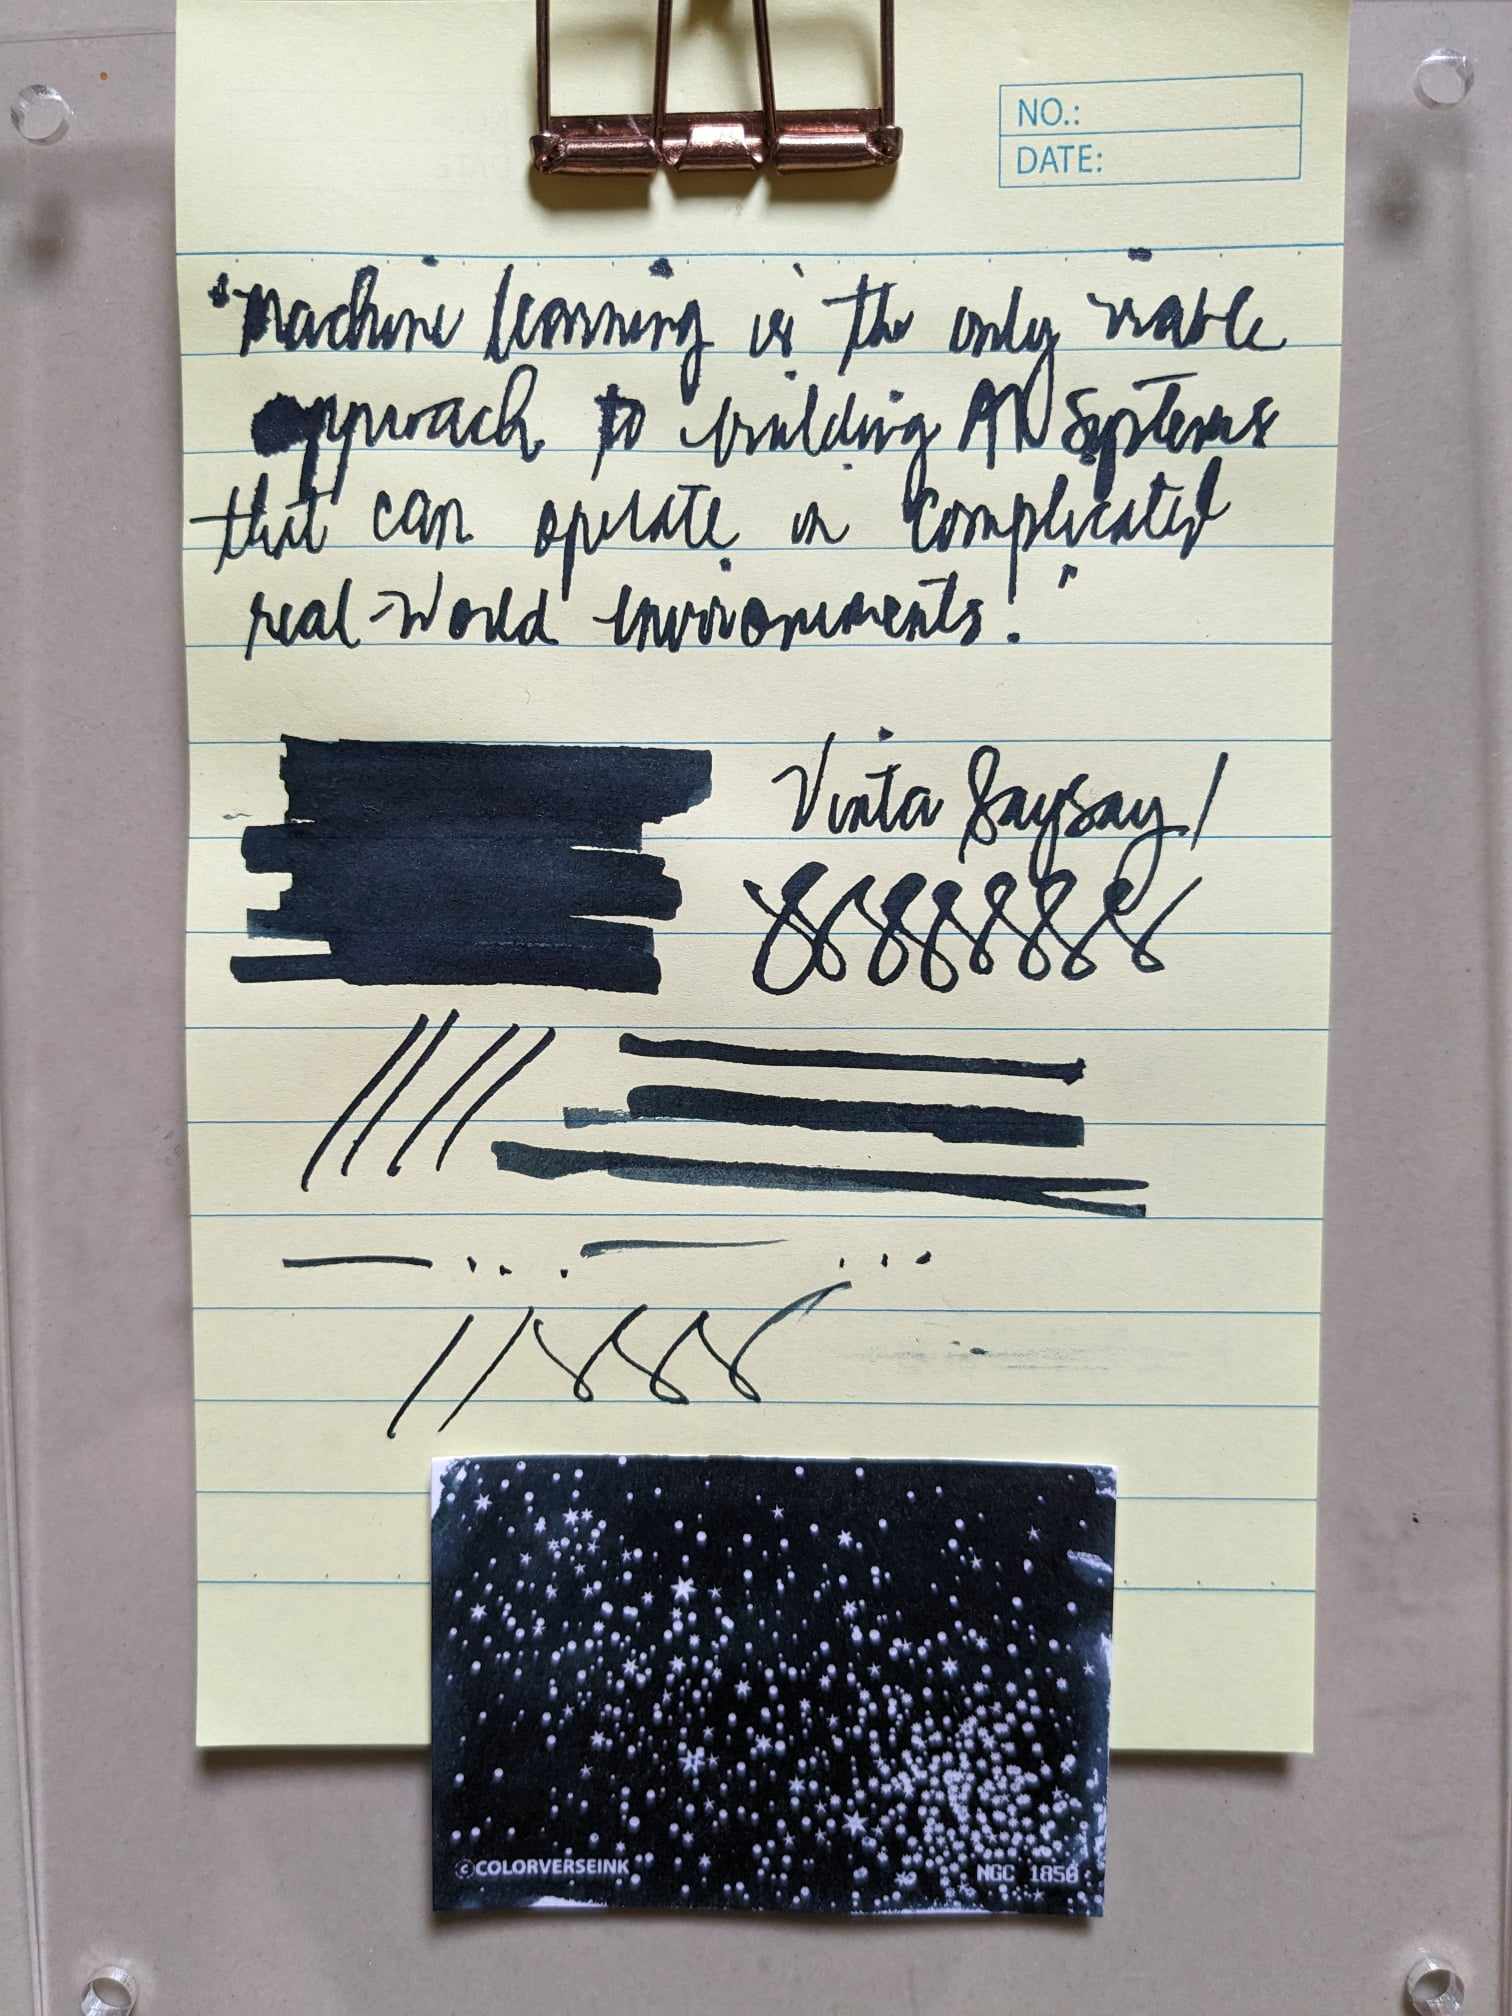 NO.:
DATE:
"Machine learning is the only viable
approach to building AI systems
that can operate in complicated
real-world environments."
Vinta Saysay /
©COLORVERSEINK
NGC 1850